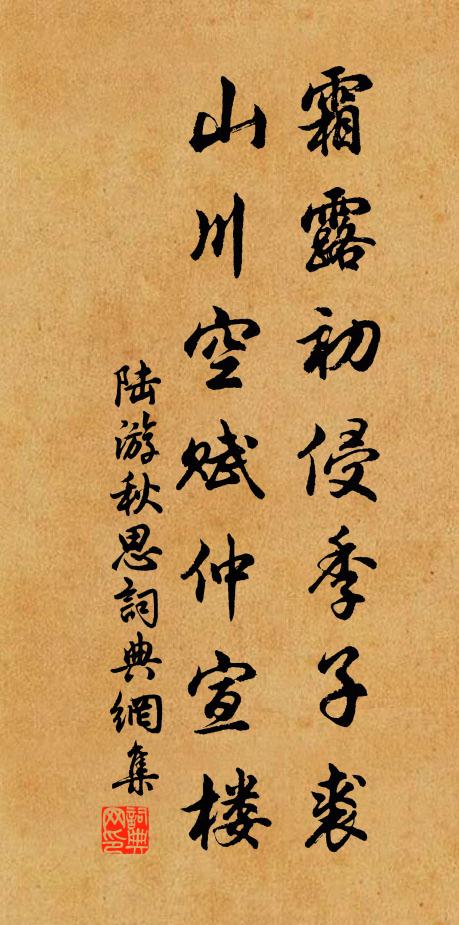 霜露初侵季子裘
山川空赋仲宣楼
陆游秋思詞典網集
詞典网印